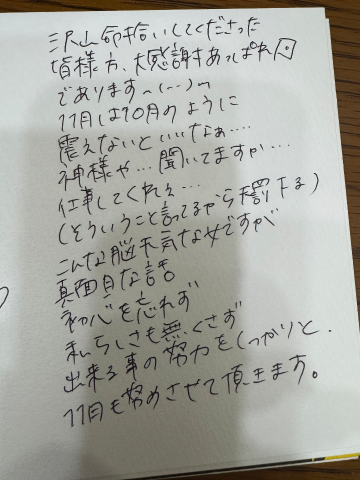 沢山命拾いしてくださった
皆様方、大感謝あっぱれ回
であります〜(--)〜
11月は10月のように
震えないといいなぁ....
神様や...聞いてますか...
仕事してくれぇ...
(そういうこと言ってるから天罰下る)
こんな脳天気な女ですが
真面目な話
初心を忘れず
私らしさも無くさず
出来る事の努力をしっかりと、
11月も努めさせて頂きます。